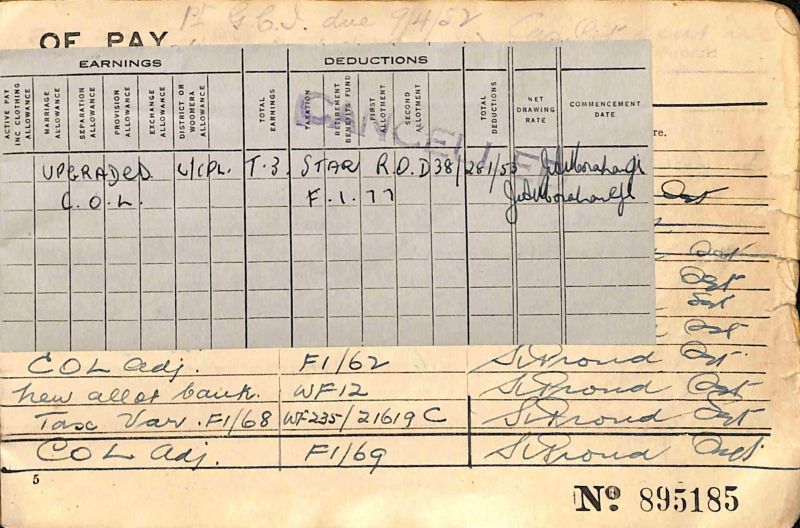 1st G.C.I. due 9/4/52
OF PAY
EARNINGS
DEDUCTIONS
ACTIVE PAY INC CLOTHING ALLOWANCE
MARRIAGE ALLOWANCE
SEPARATION ALLOWANCE
PROVISION ALLOWANCE
EXCHANGE ALLOWANCE
DISTRICT OR WOOMERA ALLOWANCE
TOTAL EARNINGS
TAXATION
RETIREMENT BENEFITS FUND
FIRST ALLOTMENT
SECOND ALLOTMENT
TOTAL DEDUCTIONS
NET DRAWING RATE
COMMENCEMENT DATE
CANCELLED
re.
UPGRADED L/CPL. T.3. STAR R.O.D 38/281/53
C.O.L. F.1.77
COL adj. F1/62 Proud
New allot bank. WF12 Proud
Tax Var. F1/68 WF235/21619C Proud
COL adj. F1/69 Proud
5
No 895185